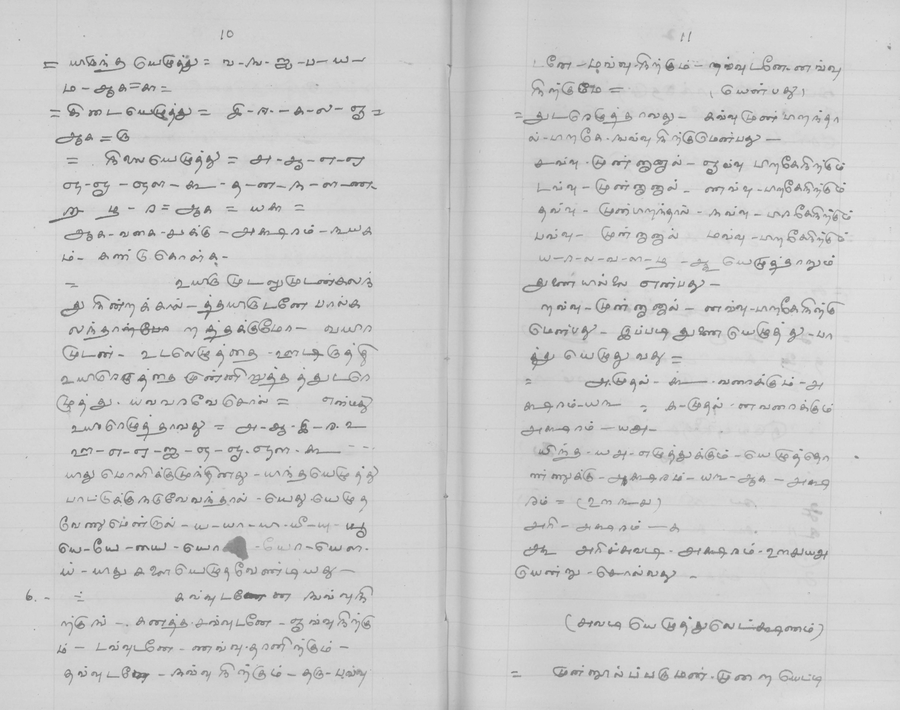 10
= யிறந்த யெழுத்து = வ - ங - ஐ - ப - ய -
ம - ஆக = ௬ =
= கிடையெழுத்து = இ - ஈ - க - ல - ஐ =
ஆக = ௫
= கிலயெழுத்து = அ - ஆ - எ - ஏ
த - ன - ந - ள - ண -
ற - ழ - ர = ஆக = =
ஆக - வகை - அக்ஷரம் -
ம் - கண்டு கொள்க -
= உயிரு முடலுமுடன்கலந்
துகின்றக்கால் - த்தயிருடனே பால்க
லந்தாற்போல வயிரா
முடன் - உடலெழுத்தை - ஊட்டிருத்தி
உயிரெழுத்தை முன்னிறுத்தத்துடரெ
ழுத்து - யவ்வாவே சொல் = என்பது
உயிரெழுத்தாவது = அ - ஆ - இ - ஈ - உ
ஊ - எ - ஏ - ஐ - ஒ - ஓ - ஔ - ஃ
யாது மொளிக்குமுந்தினது - யாந்தயெழுத்து
பாட்டுக்கு நடுவேவந்தால் - யெது யெழுத
வேணுமென்றால் - ய - யா - யி - யீ - யு - யூ
யெ - யே - யை - யொ - யோ - யௌ -
ய் - யாது உளயெழுதவேண்டியது -
6. - = கவ்வுடனே ஙவ்வு நி
ற்கும் - கனத்த - சவ்வுடனே - ஞவ்வு நிற்கு
ம் - டவ்வுடனே - ணவ்வு - தானிற்கும் -
தவ்வுடனே - நவ்வு நிற்கும் - தரு - பவ்வு
11
னே - மவ்வு - நிற்கும் - றவ்வுடனே - னவ்வு
நிற்குமே = (யென்பது)
= துடரெழுத்தாவது - கவ்வு முன் பிறந்தா
ல் - பிறகே - ஙவ்வு நிற்குமென்பது -
சவ்வு - முன்னானால் - ஞவ்வு பிறகேநிற்கும்
டவ்வு - முன்னானால் - ணவ்வு - பிறகேநிற்கும்
தவ்வு - முன்பிறந்தால் - நவ்வு - பிறகேநிற்கும்
பவ்வு - முன்னானால் மவ்வு - பிறகேநிற்கும்
ய - ர - ல - வ - ள - ழ - ஆ யெழுத்தாறும்
துணையில்லை என்பது -
றவ்வு - முன்னானால் - னவ்வு - பிறகேநிற்கு
மென்பது - இப்படி துணையெழுத்து - பா
த்து யெழுதுவது =
= அ முதல் - ஃ - வரைக்கும் - அ
க்ஷரம் - ௰௩ = க முதல் - ன வரைக்கும்
அக்ஷரம் - ௰௮ -
யிந்த - ௰௮ - எழுத்துக்கும் - யெழுத்தொ
ன்னுக்கு - அக்ஷரம் - ௰௩ - ஆக - அக்ஷ
ரம் = (௨௱௩௰௪)
அரி - அக்ஷரம் - ௧
ஆக அரிச்சுவடி - அக்ஷரம் - ௨௱௪௰௮
யென்று - சொல்வது -
(அவடி யெழுத்துலெட்க்ஷணம்)
= முன்னூல்ப்படுமன் - முறை யெட்டி